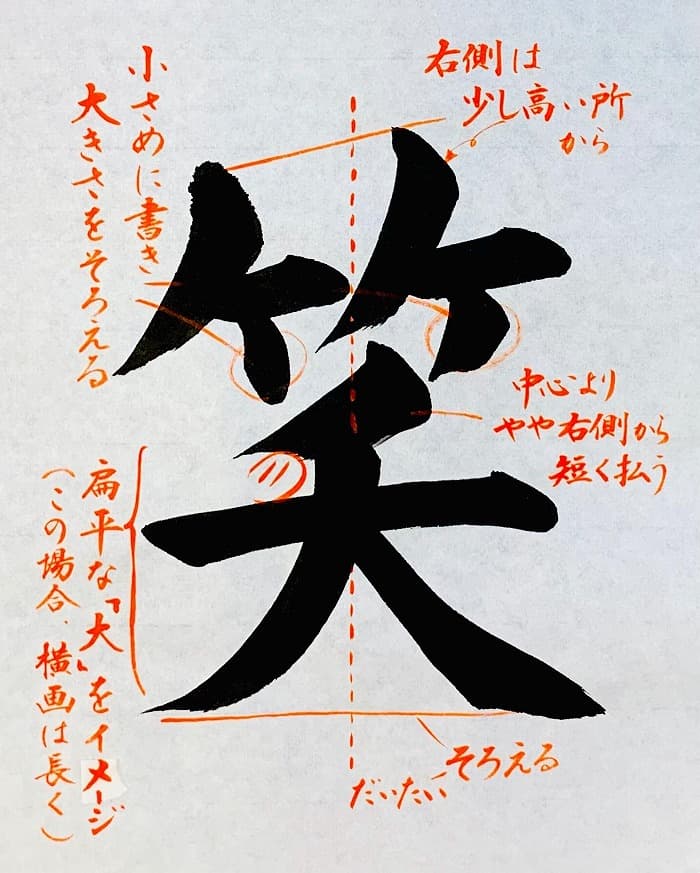 笑
右側は
少し高い所
から
小さめに書き
大きさをそろえる
中心より
やや右側から
短く払う
扁平な「大」をイメージ
(この場合、横画は長く)
だいたい
そろえる